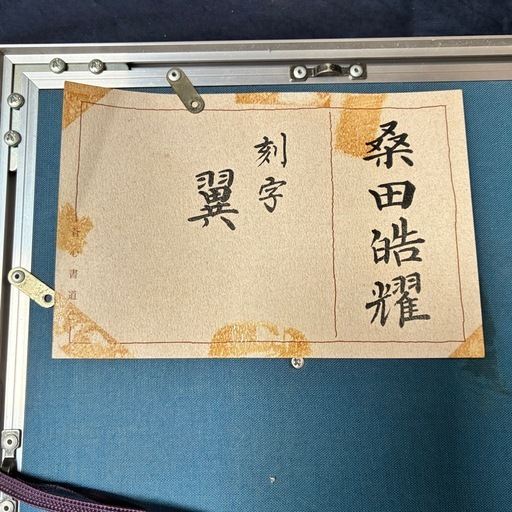 桑田皓耀
刻字
翼
書道